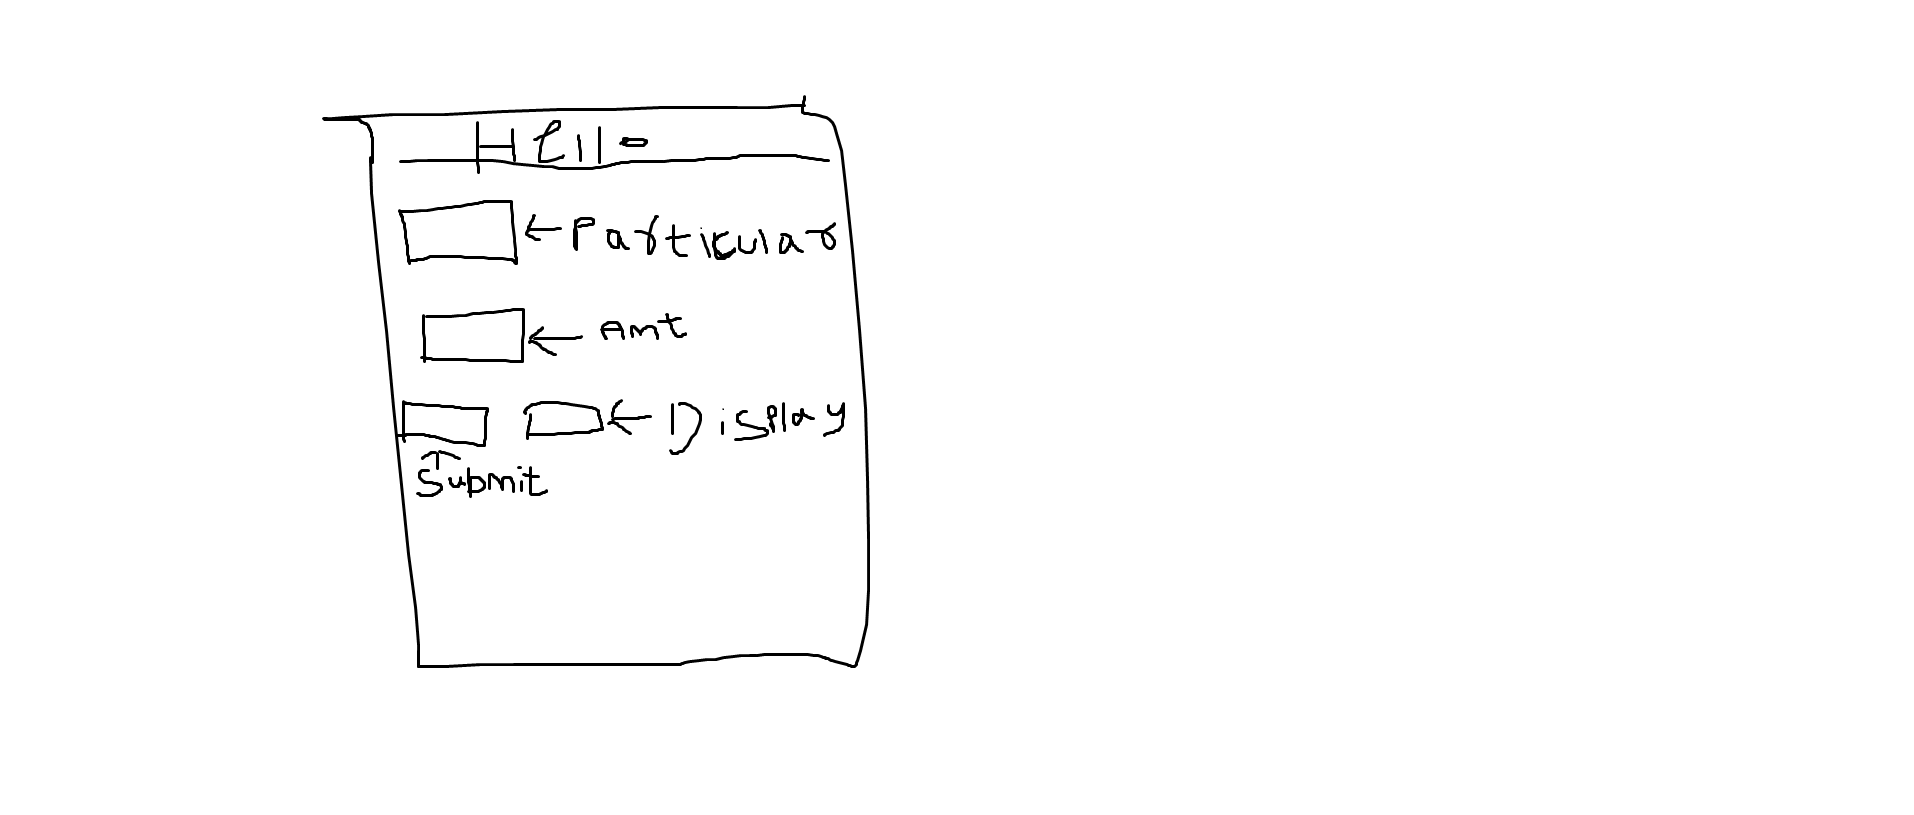 Hello
Particular
Amt
Display
Submit